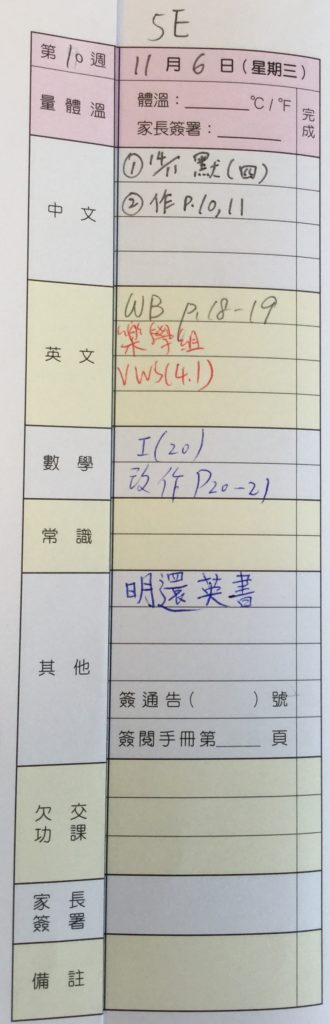 5E
第10週 11月6日(星期三)
量體溫 體溫：______℃/℉ 完成
家長簽署：______
中文 ①14/11 默(四)
②作 P.10,11
英文 WB p.18-19
樂學組
VWS(4.1)
數學 I(20)
改作 P20-21
常識
其他 明還英書
簽通告( )號
簽閱手冊第____頁
欠交功課
家長簽署
備註